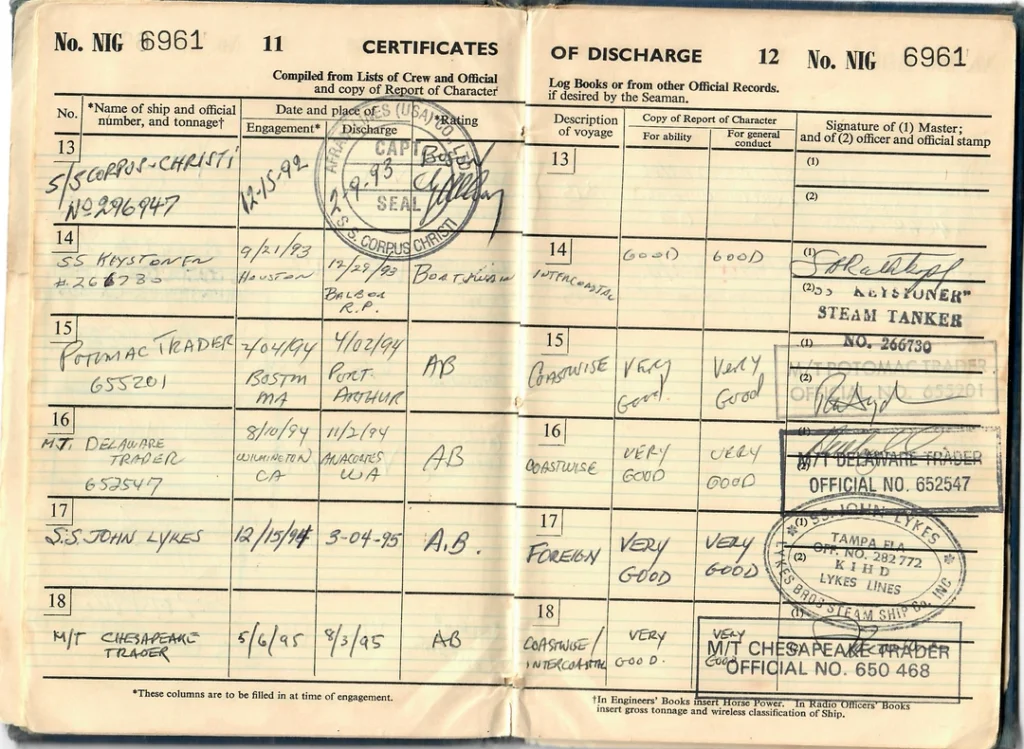 No. NIG 6961 11 CERTIFICATES
Compiled from Lists of Crew and Official
and copy of Report of Character
No. *Name of ship and official number, and tonnage† Date and place of *Rating
Engagement* Discharge
13
S/S CORPUS-CHRISTI 12-15-92 2-9-93 Bosun
No 296947
AFRAM LINES (USA) CO. LTD
CAPT
SEAL
S.S. CORPUS CHRISTI
14
SS KEYSTONER 9/21/93 12/29/93 BOATSWAIN
# 266730 HOUSTON BALBOA
R.P.
15
POTOMAC TRADER 2/04/94 4/02/94 AB
655201 BOSTON PORT
MA ARTHUR
16
M.T. DELAWARE 8/10/94 11/2/94 AB
TRADER WILMINGTON ANACORTES
652547 CA WA
17
S.S. JOHN LYKES 12/15/94 3-04-95 A.B.
18
M/T CHESAPEAKE 5/6/95 8/3/95 AB
TRADER
*These columns are to be filled in at time of engagement.
OF DISCHARGE 12 No. NIG 6961
Log Books or from other Official Records.
if desired by the Seaman.
Description of voyage Copy of Report of Character Signature of (1) Master; and of (2) officer and official stamp
For ability For general conduct
13 (1)
(2)
14 GOOD GOOD (1)
INTERCOASTAL (2)
SS KEYSTONER"
STEAM TANKER
NO. 266730
15 (1)
COASTWISE VERY VERY
Good Good (2)
M/T POTOMAC TRADER
OFFICIAL NO. 655201
16 (1)
COASTWISE VERY VERY
GOOD GOOD (2)
M/T DELAWARE TRADER
OFFICIAL NO. 652547
17 (1)
FOREIGN VERY VERY
GOOD GOOD (2)
SS. JOHN LYKES
TAMPA FLA
OFF. NO. 282772
KIHD
LYKES LINES
LYKES BROS STEAM SHIP Co. INC
18 (1)
COASTWISE/ VERY VERY
INTERCOASTAL GOOD. GOOD
M/T CHESAPEAKE TRADER
OFFICIAL NO. 650 468
†In Engineers' Books insert Horse Power. In Radio Officers' Books
insert gross tonnage and wireless classification of Ship.